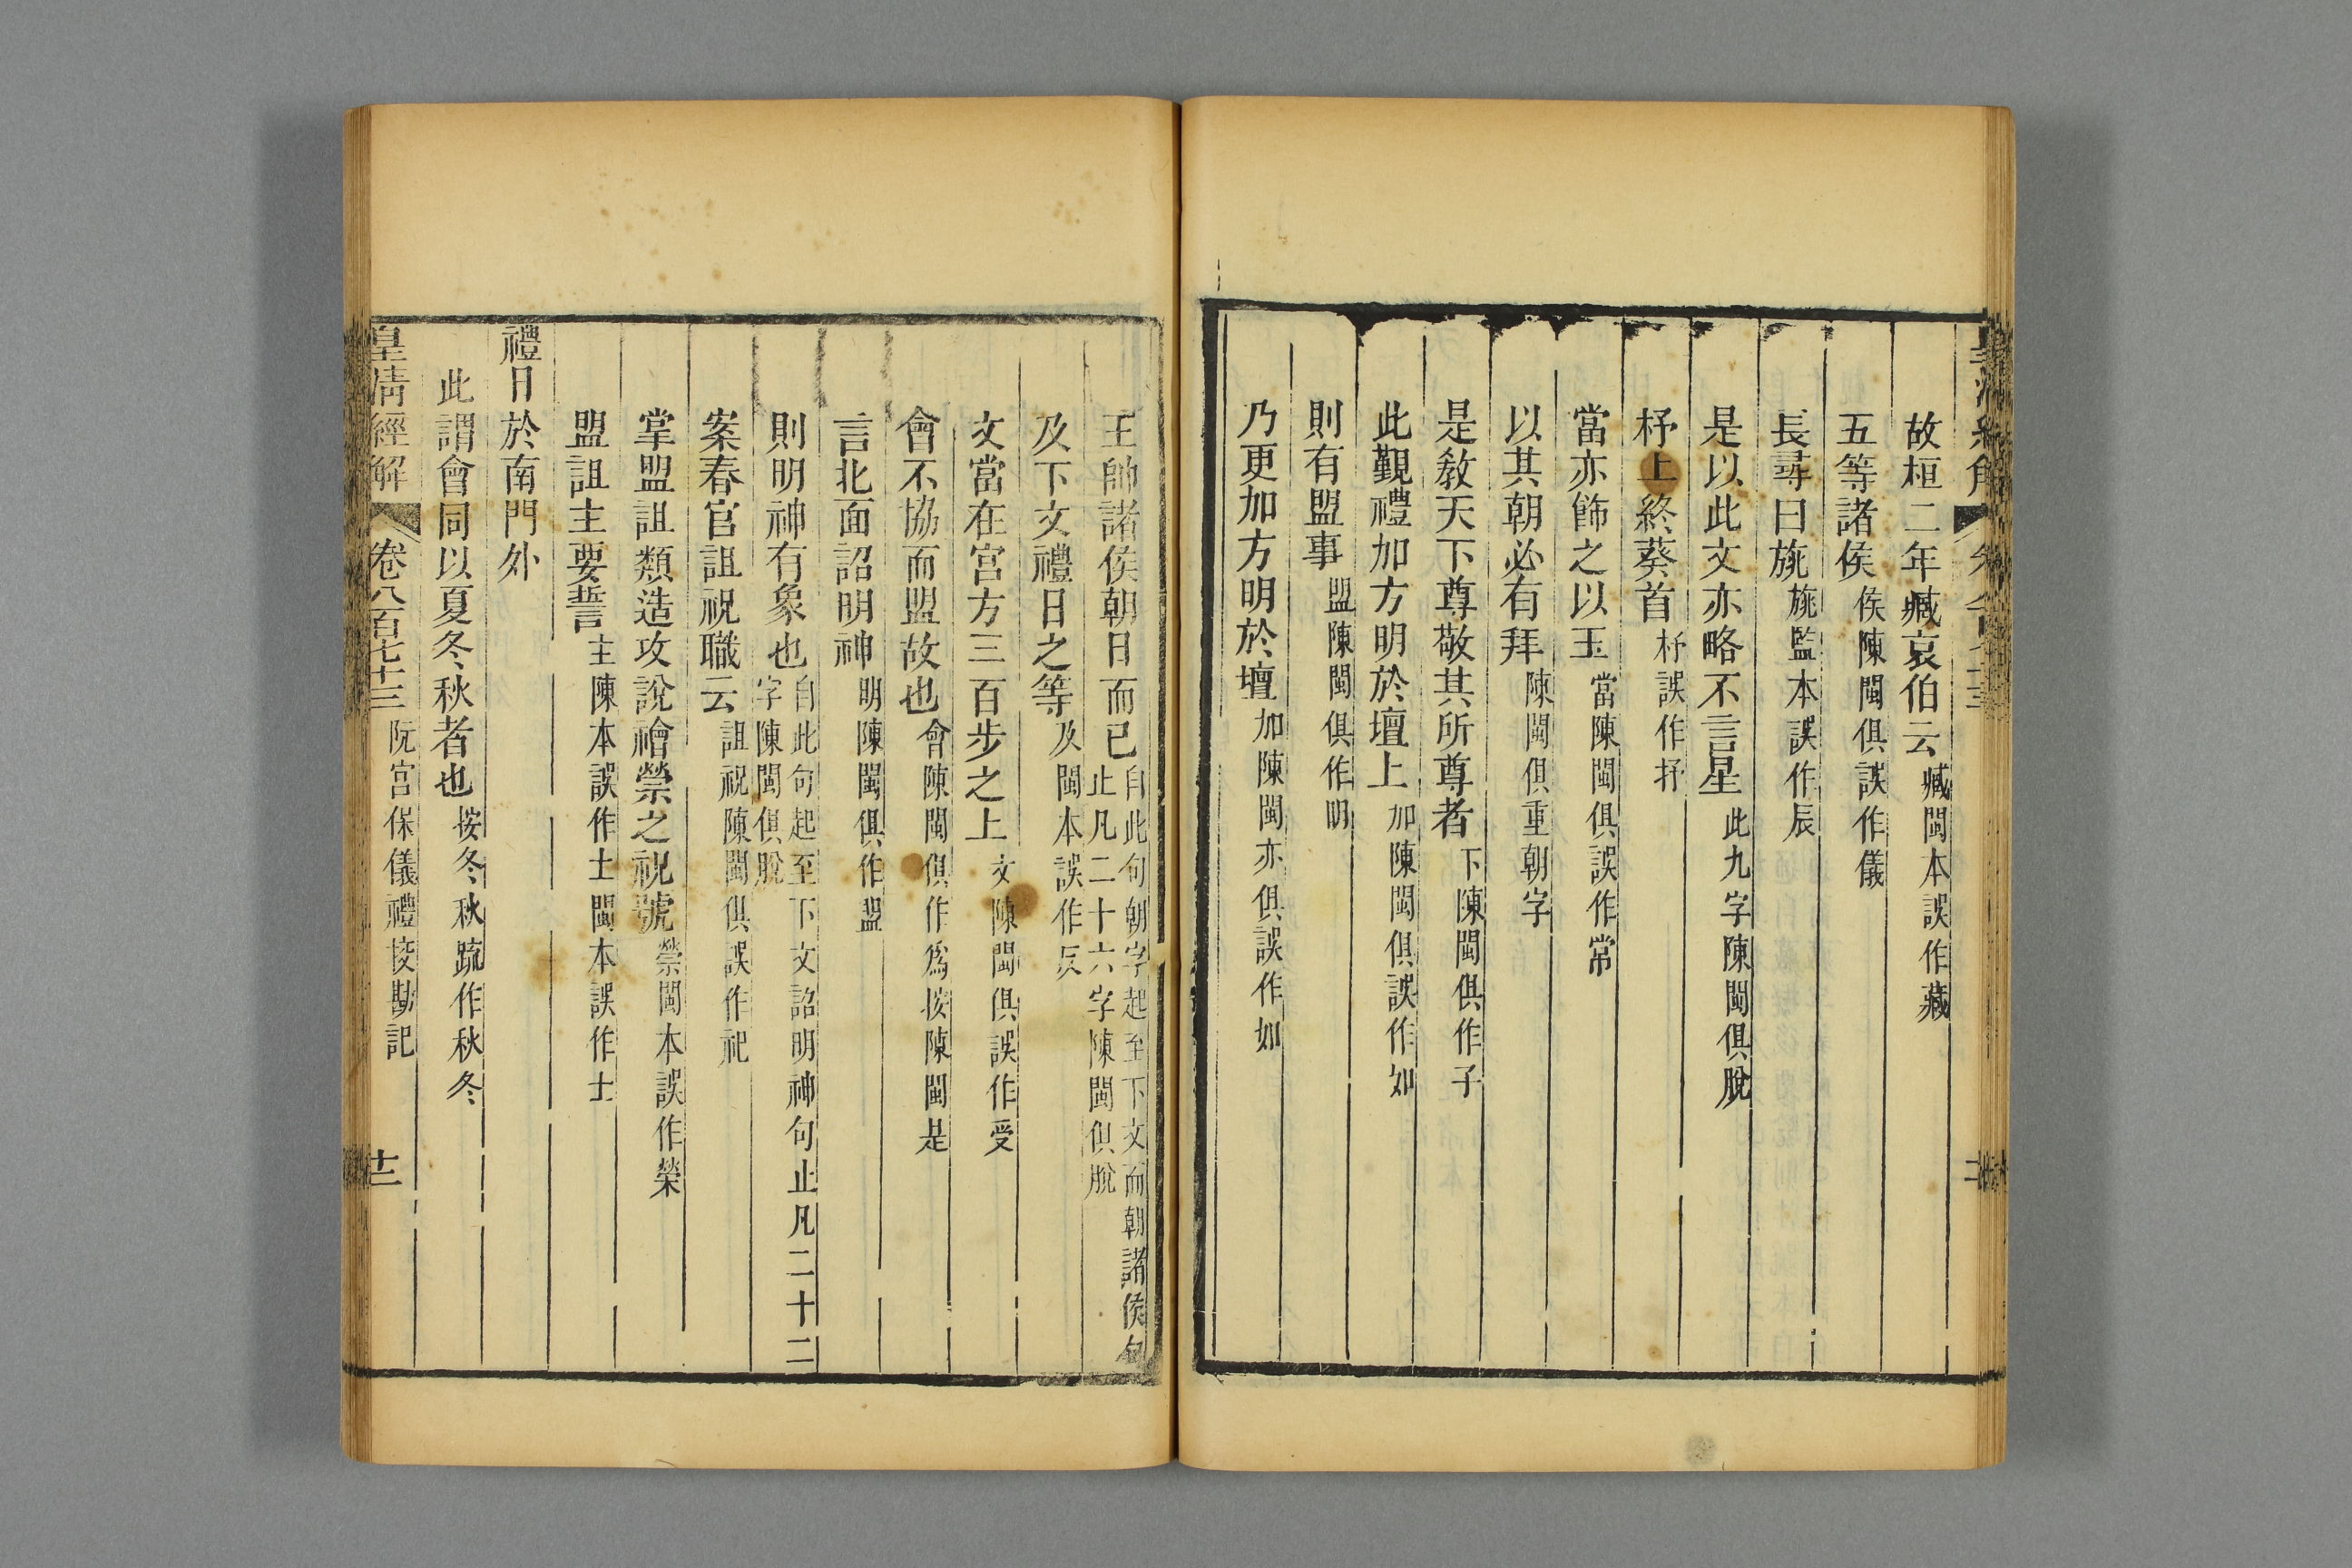 故桓二年臧哀伯云臧閩本誤作藏
五等諸侯侯陳閩俱誤作儀
長尋曰旐旐監本誤作辰
是以此文亦略不言星此九字陳閩俱脫
杼上終葵首杼誤作抒
當亦飾之以玉當陳閩俱誤作常
以其朝必有拜陳閩俱重朝字
是敎天下尊敬其所尊者下陳閩俱作子
此覲禮加方明於壇上加陳閩俱誤作如
則有盟事盟陳閩俱作明
乃更加方明於壇加陳閩亦俱誤作如
王帥諸侯朝日而已自此句朝字起至下文而朝諸侯句
止凡二十六字陳閩俱脫
及下文禮日之等及閩本誤作反
文當在宮方三百步之上文陳閩俱誤作受
會不協而盟故也會陳閩俱作爲按陳閩是
言北面詔明神明陳閩俱作盟
則明神有象也自此句起至下文詔明神句止凡二十二
字陳閩俱脫
案春官詛祝職云詛祝陳閩俱誤作祀
掌盟詛類造攻說禬禜之祝號禜閩本誤作榮
盟詛主要誓主陳本誤作士閩本誤作士
禮日於南門外
此謂會同以夏冬秋者也按冬秋疏作秋冬
皇清經解 卷八百七十三 阮宮保儀禮挍勘記 十二